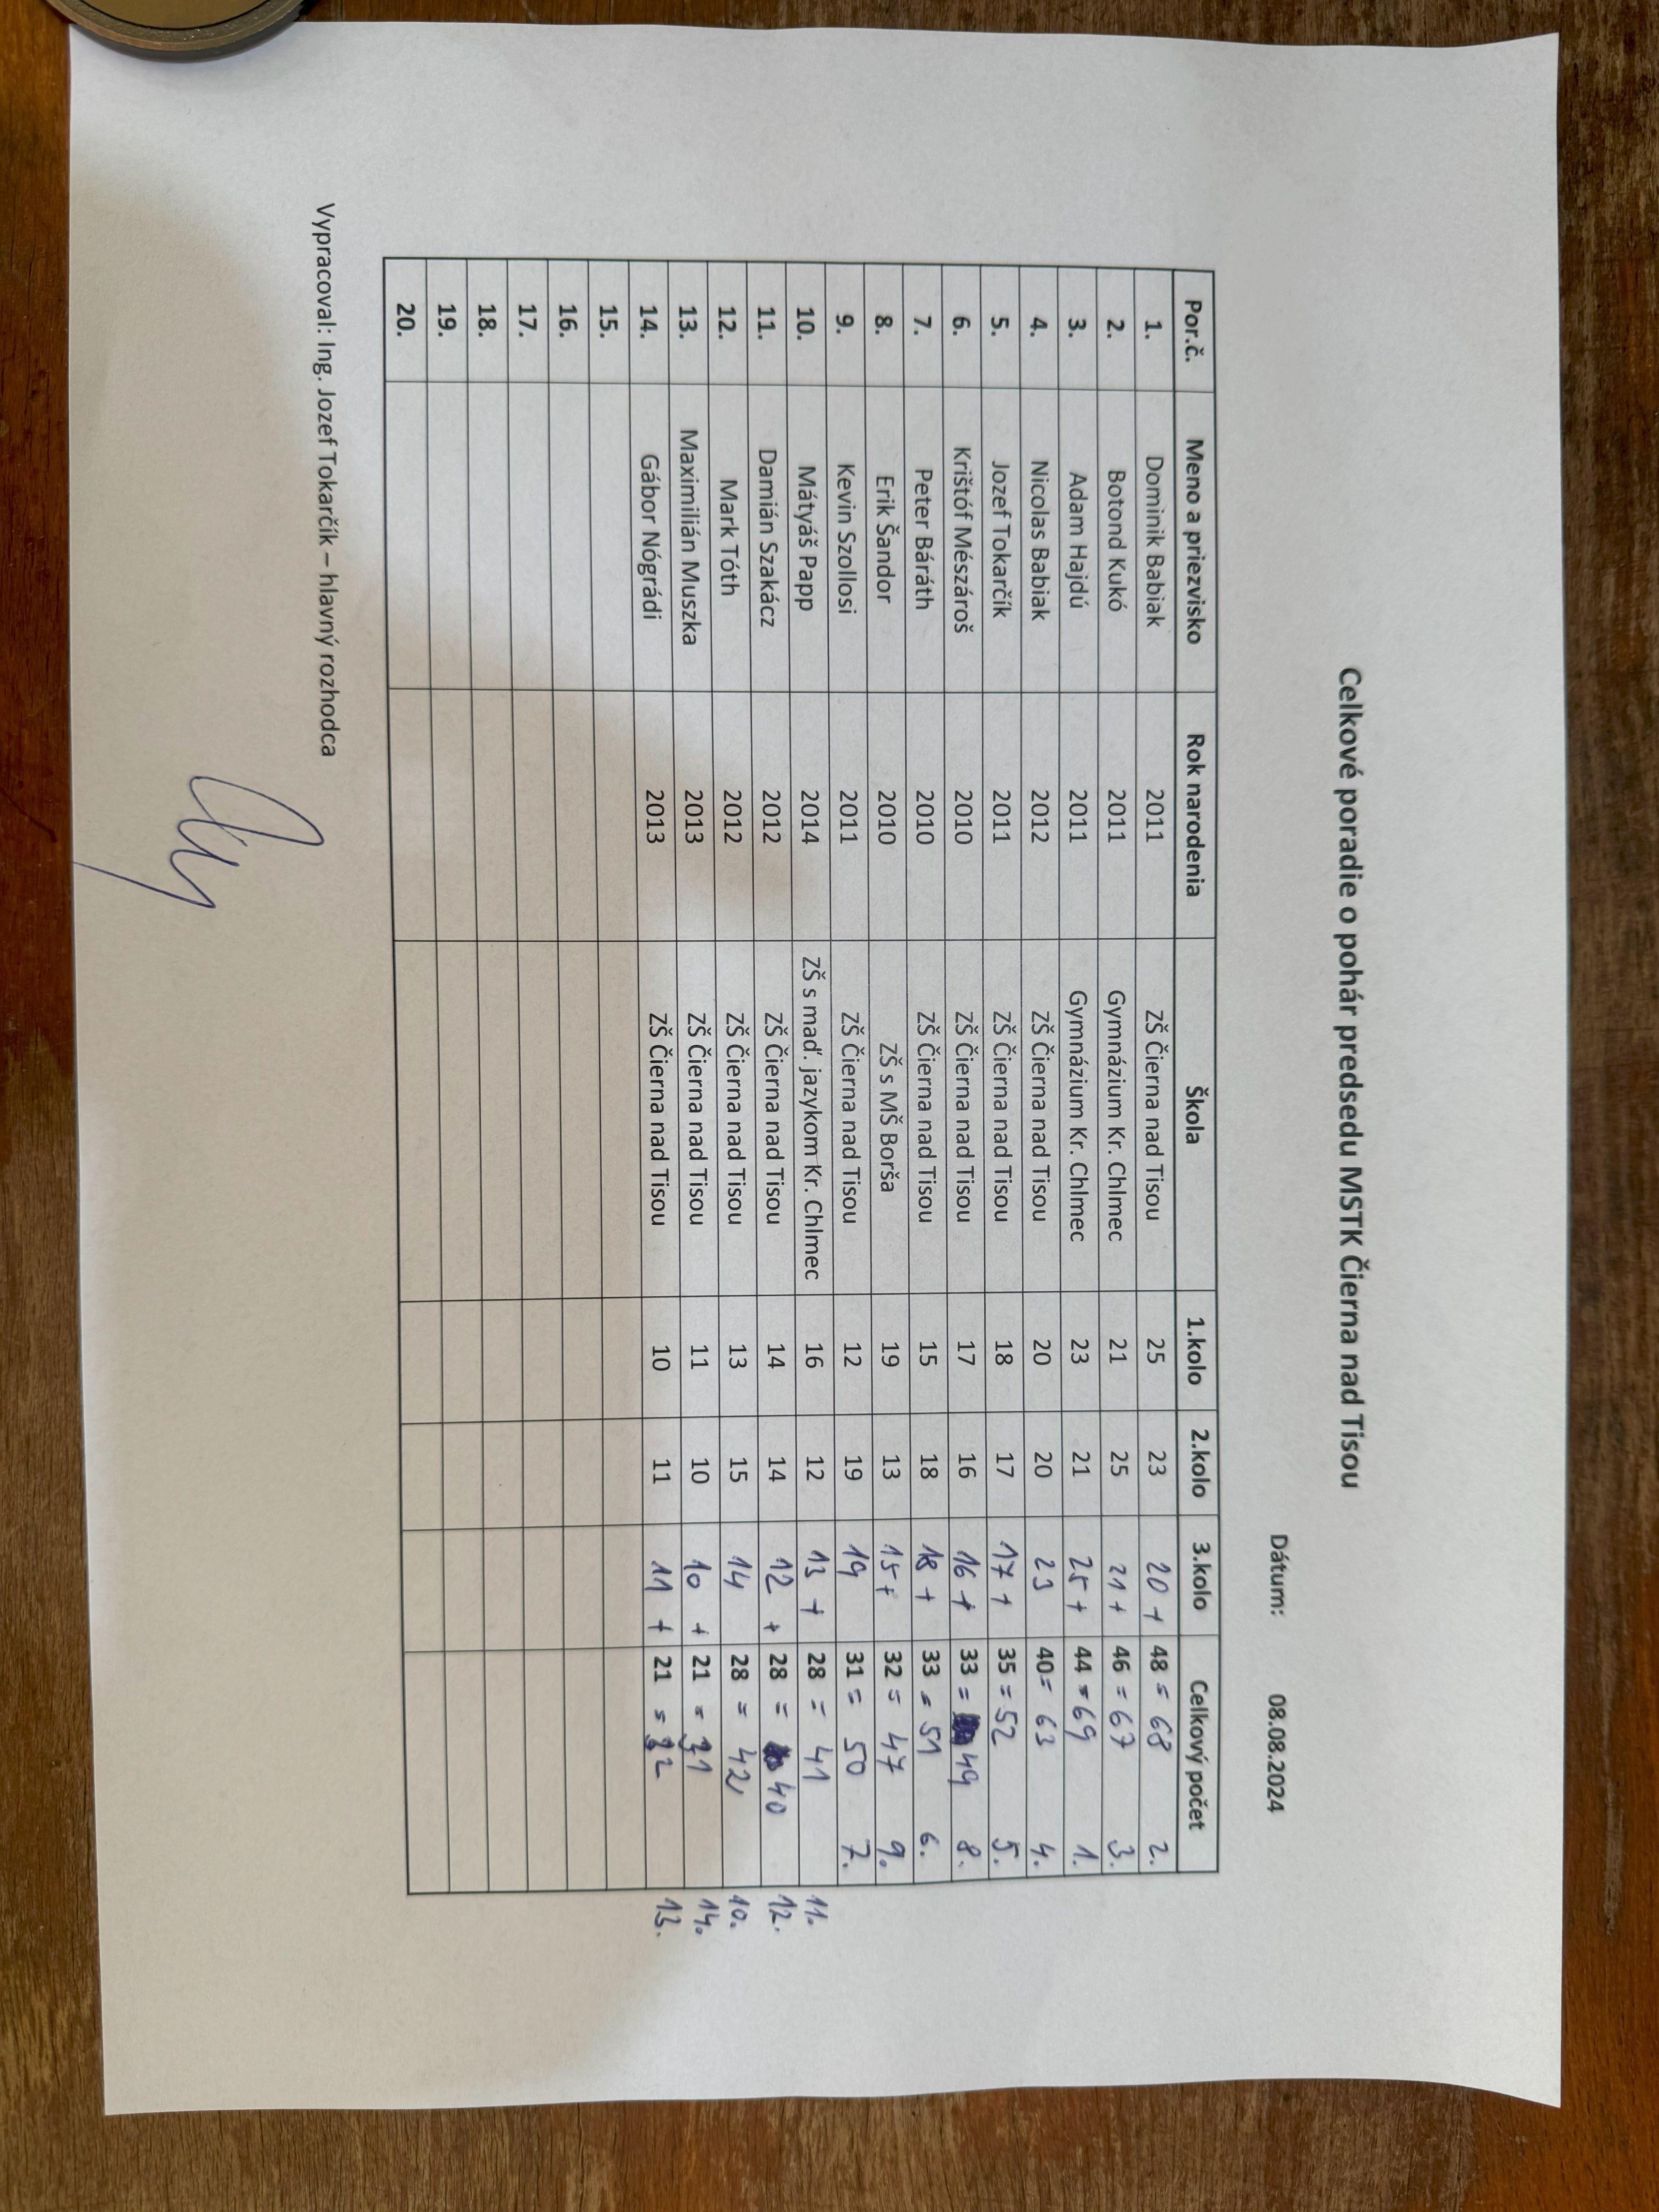 Celkové poradie o pohár predsedu MSTK Čierna nad Tisou
Dátum: 08.08.2024
Por.č. Meno a priezvisko Rok narodenia Škola 1.kolo 2.kolo 3.kolo Celkový počet
1. Dominik Babiak 2011 ZŠ Čierna nad Tisou 25 23 20 + 48 = 68 2.
2. Botond Kukó 2011 Gymnázium Kr. Chlmec 21 25 21 + 46 = 67 3.
3. Adam Hajdú 2011 Gymnázium Kr. Chlmec 23 21 25 + 44 = 69 1.
4. Nicolas Babiak 2012 ZŠ Čierna nad Tisou 20 20 23 40 = 63 4.
5. Jozef Tokarčík 2011 ZŠ Čierna nad Tisou 18 17 17 + 35 = 52 5.
6. Krištóf Mészároš 2010 ZŠ Čierna nad Tisou 17 16 16 + 33 = 49 8.
7. Peter Báráth 2010 ZŠ Čierna nad Tisou 15 18 18 + 33 = 51 6.
8. Erik Šandor 2010 ZŠ s MŠ Borša 19 13 15 + 32 = 47 9.
9. Kevin Szollosi 2011 ZŠ Čierna nad Tisou 12 19 19 31 = 50 7.
10. Mátyáš Papp 2014 ZŠ s maď. jazykom Kr. Chlmec 16 12 13 + 28 = 41 11.
11. Damián Szakácz 2012 ZŠ Čierna nad Tisou 14 14 12 + 28 = 40 12.
12. Mark Tóth 2012 ZŠ Čierna nad Tisou 13 15 14 28 = 42 10.
13. Maximilián Muszka 2013 ZŠ Čierna nad Tisou 11 10 10 + 21 = 31 14.
14. Gábor Nógrádi 2013 ZŠ Čierna nad Tisou 10 11 11 + 21 = 32 13.
15.
16.
17.
18.
19.
20.
Vypracoval: Ing. Jozef Tokarčík – hlavný rozhodca